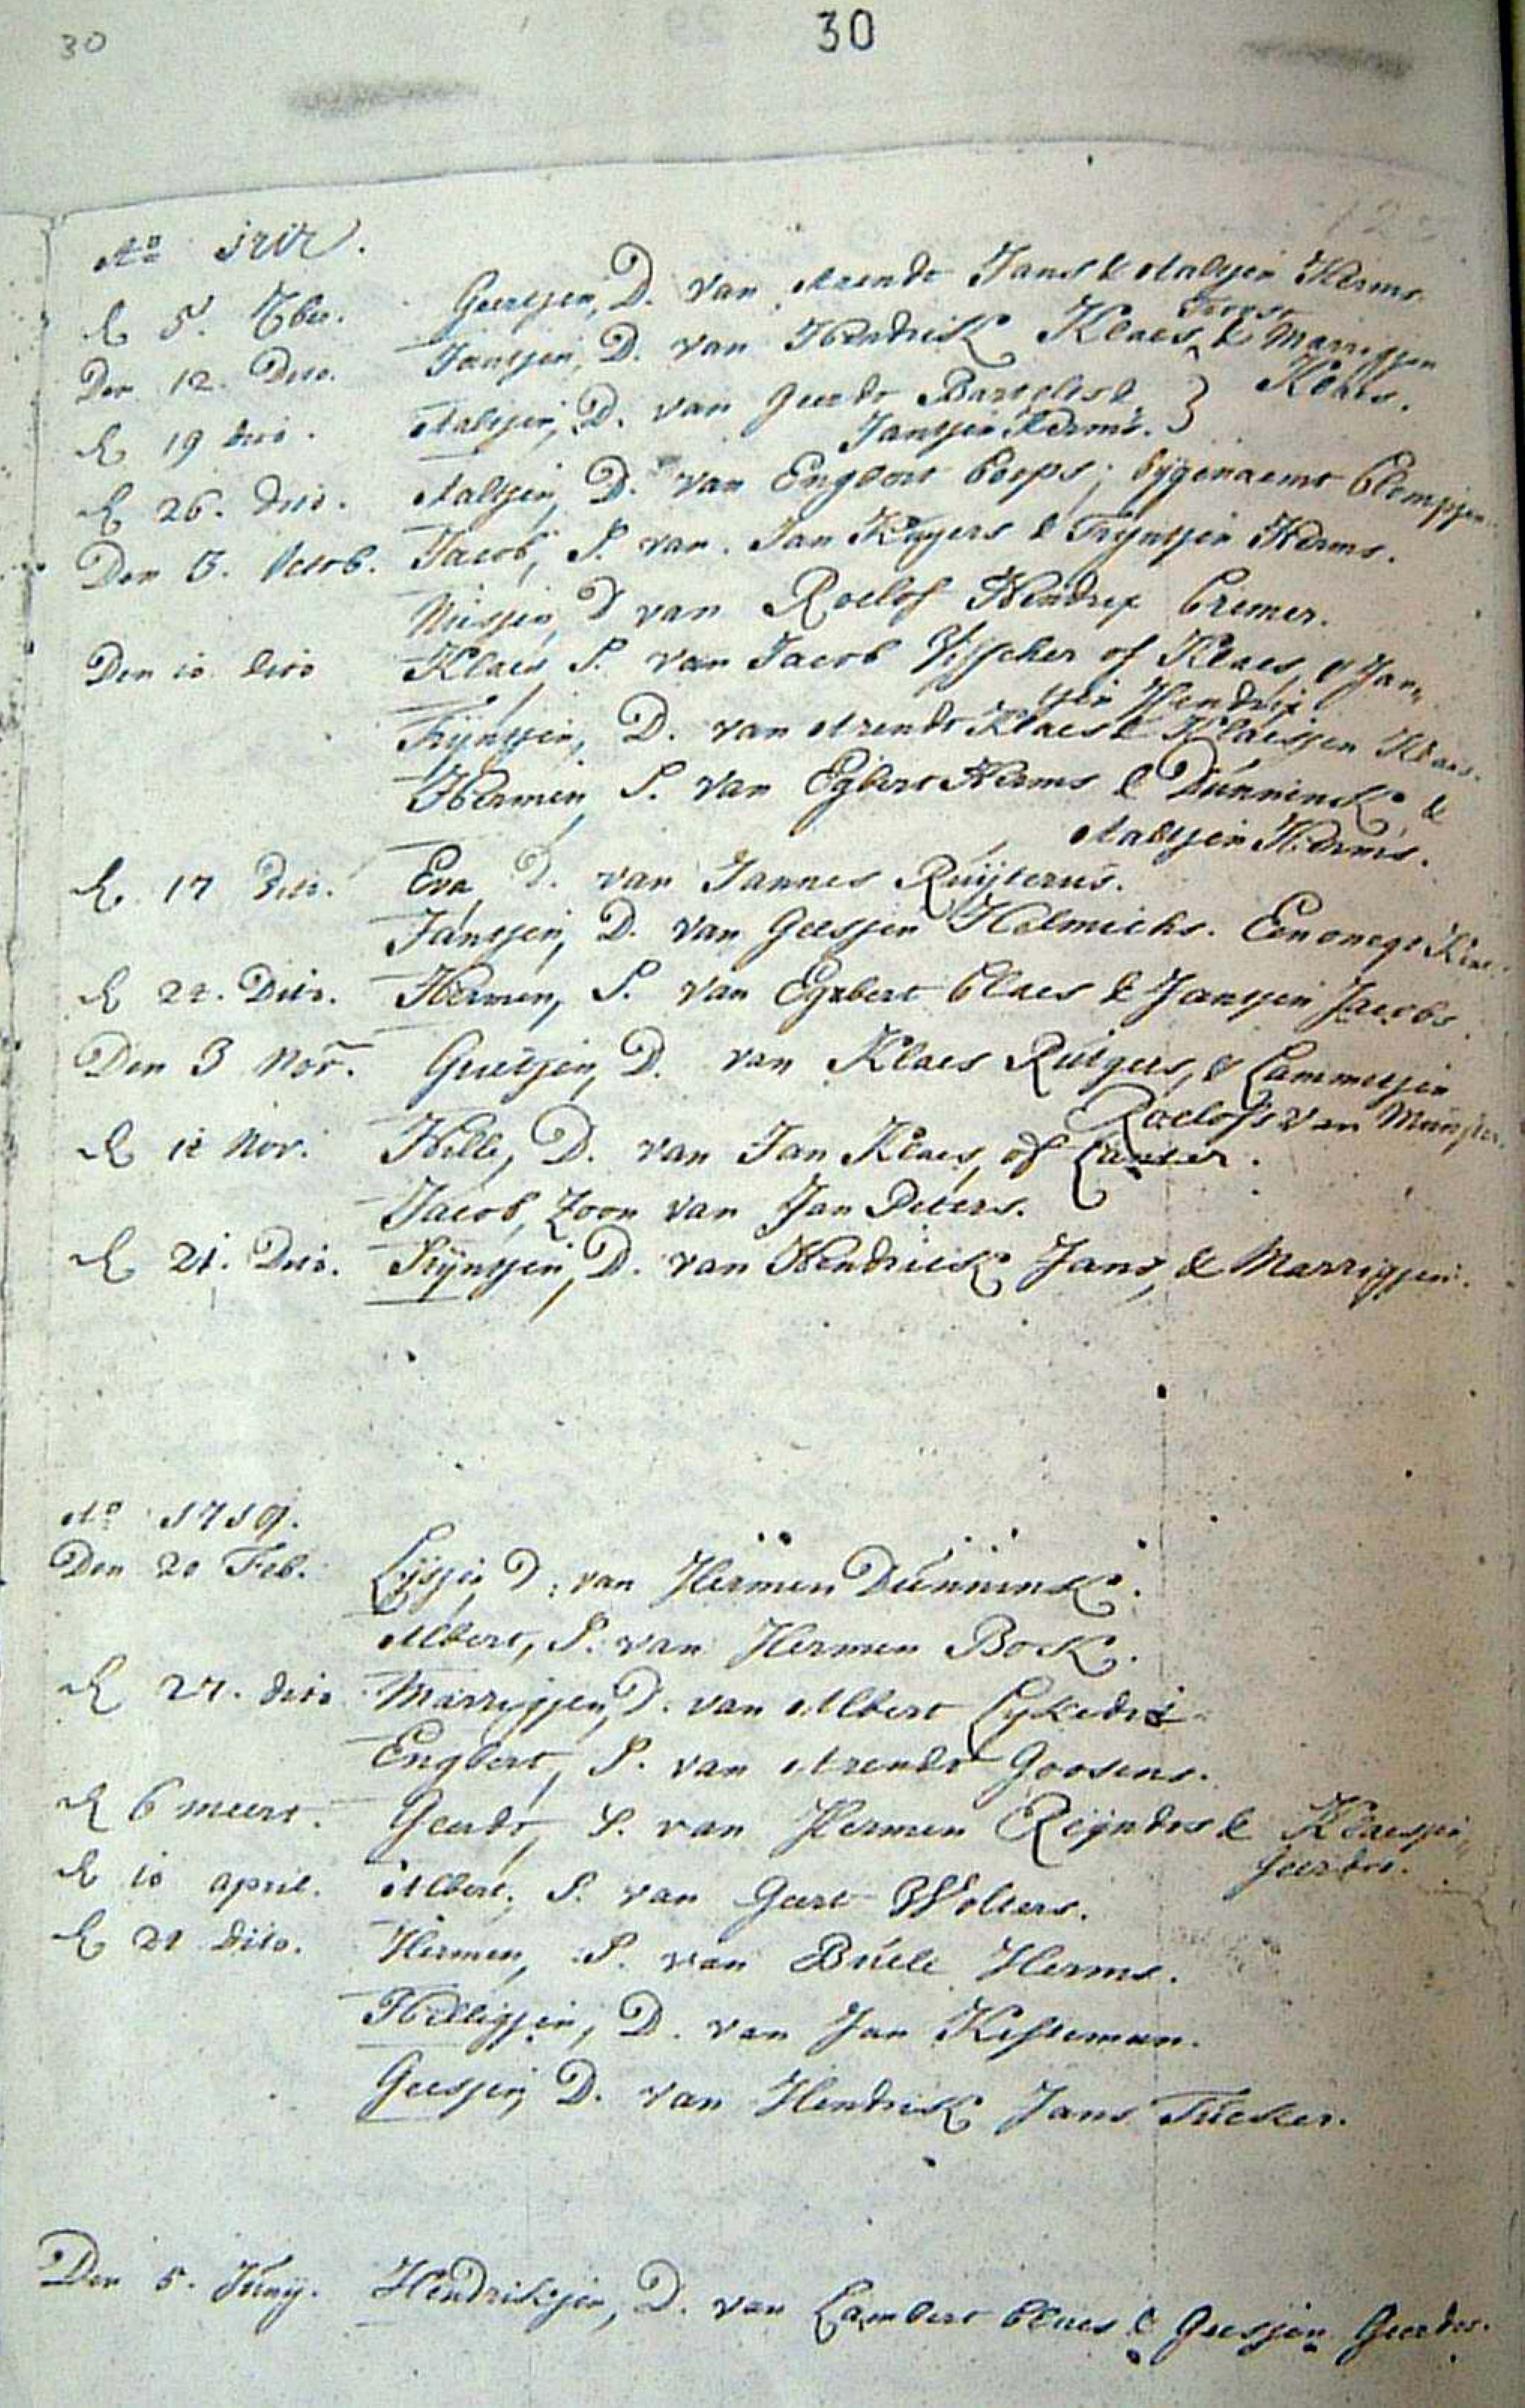 30
30
Ao
d 5. 7ber. Geertjen, D. van Arendt Jans & Aaltjen Herms
Den 12. Dito. Jantjen, D. van Hendrik Klaes, & Marrigjen
Klaes.
d 19 dito. Aaltjen, D. van Geerdt Bartelts &
Jantjen Herms.
d 26. dito. Aaltjen, D. van Engbert Coops; bygenaemt Clompjen
Den 3. Octob. Jacob, S. van Jan Kuyers & Tryntjen Herms.
D van Roelof Hendrix Cremer.
Den 10 dito Klaes S. van Jacob Visscher of Klaes, & Jan-
tjen Hendrix
Trijntjen, D. van Arendt Klaes & Klaesjen Klaes.
Hermen, S. van Egbert Herms & Dunnink &
Aaltjen Herms.
d 17 Dito. Eva D. van Jannes Ruijterus.
Jantjen, D. van Geesjen Helmichs. Een onegt Kint
d 24. Dito. Hermen, S. van Egbert Claes & Jantjen Jacobs
Den 3 Nov. Grietjen, D. van Klaes Rutgers, & Lammetjen
Roelofs van Munster.
d 12 Nov. Hille, D. van Jan Klaes, of Canter.
Jacob, Zoon van Jan Peters.
d 21. Dito. Trijntjen, D. van Hendrick Jans, & Marrigjen.
Ao 1719.
Den 20 Feb. Lijsjen D: van Hermen Dunnink.
Albert, S. van Hermen Bok.
d 27. dito Marrigjen, D. van Albert
Engbert, S. van Arendt Goosens.
d 6 meert. Geerdt, S. van Hermen Reijndrs & Klaesjen
Geerdts.
d 10 april. Albert, S. van Geert Wolters.
d 21 Dito. Hermen, S. van Buele Herms.
Hilligjen, D. van Jan Kesteman.
Geesjen, D. van Hendrik Jans Tucker.
Den 5. Junij. Hendrikjen, D. van Lambert Claes & Geesjen Geerdts.